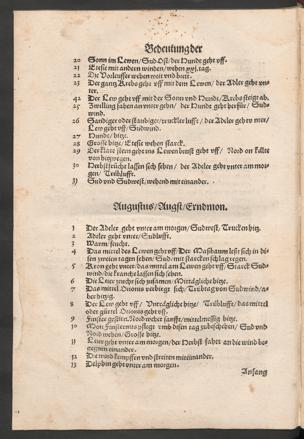 Bedeutung der
20 Sonn im Lewen / Sud Ost / der Hundt geht vff.
21 Etesie mit andern winden / wehen xvj. tag.
22 Die Vorleuffer wehen
23 Der gantz Krebs geht vff mit dem Lewen / der Adler geht vn-
ter.
42 Der Lew geht vff mit der Sonn vnd Hundt / Krebs steigt ab.
25 Zwilling fahen an der Hundt geht herfür / Sud-
wind.
26 Sandiger oder staubiger / truckler lufft / der Adeler geht vnter /
Lew geht vff / Sudwind.
27 Hundt / hitz.
28 Grosse hitz / Etesie wehen starck.
29 Der klare stern geht ins Lewen brust geht vff / Nord on Kälte
von hitz wegen.
30 Herbstfrücht lassen sich sehen / der Adeler geht vnter am mor-
gen / Trüblufft.
31 Sud vnd Sudwest / wehend mit einander.
Augustus / Augst / Erndmon.
1 Der Adeler geht vnter am morgen / Sudwest / Trucken hitz.
2 Adeler geht vnter / Sudlufft.
3 Warm feucht.
4 Das mittel des Lewen geht vff / Der Mastbaum leßt sich in di-
sen zweien tagen sehen / Sud / mit starcken schlag regen.
5 Kron geht vnter / das mittel am Lewen geht vff / Starck Sud-
wind / die kranche lassen sich sehen.
6 Die Leier zeucht sich zusamen / Mittägliche hitz.
7 Das mittel Orionis verbirgt sich / Trubtag von Sudwind / a-
ber hitzig.
8 Der Lew geht vff / Vnträgliche hitze / Trüblufft / das mittel
oder gürtel Orionis geht vff.
9 Finster gestirn / Nord wehet sanfft / mittelmessig hitz.
10 Mon Finsternis pflegt vmb disen tag zubeschehen / Sud vnd
Nord wehen / Grosse hitz.
11 Leier geht vnter am morgen / der Herbst fahet an die wind be-
gegnen einander.
12 Die wind kempffen vnd streiten miteinander.
13 Delphin geht vnter am morgen.
Anfang